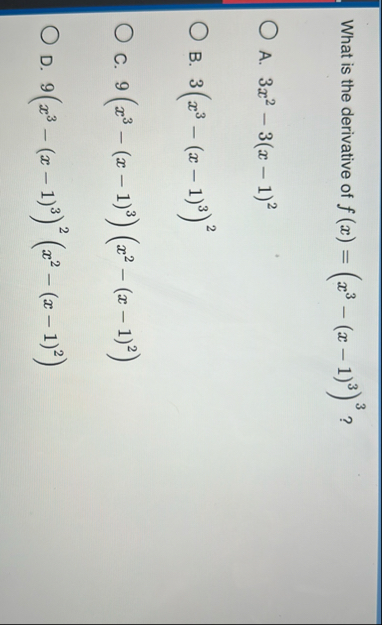 What is the derivative of f (x) = (x³ − (x − 1)³)³ ?
A. 3x² − 3(x − 1)²
B. 3(x³ − (x − 1)³)²
C. 9(x³ − (x − 1)³)(x² − (x − 1)²)
D. 9(x³ − (x − 1)³)²(x² − (x − 1)²)